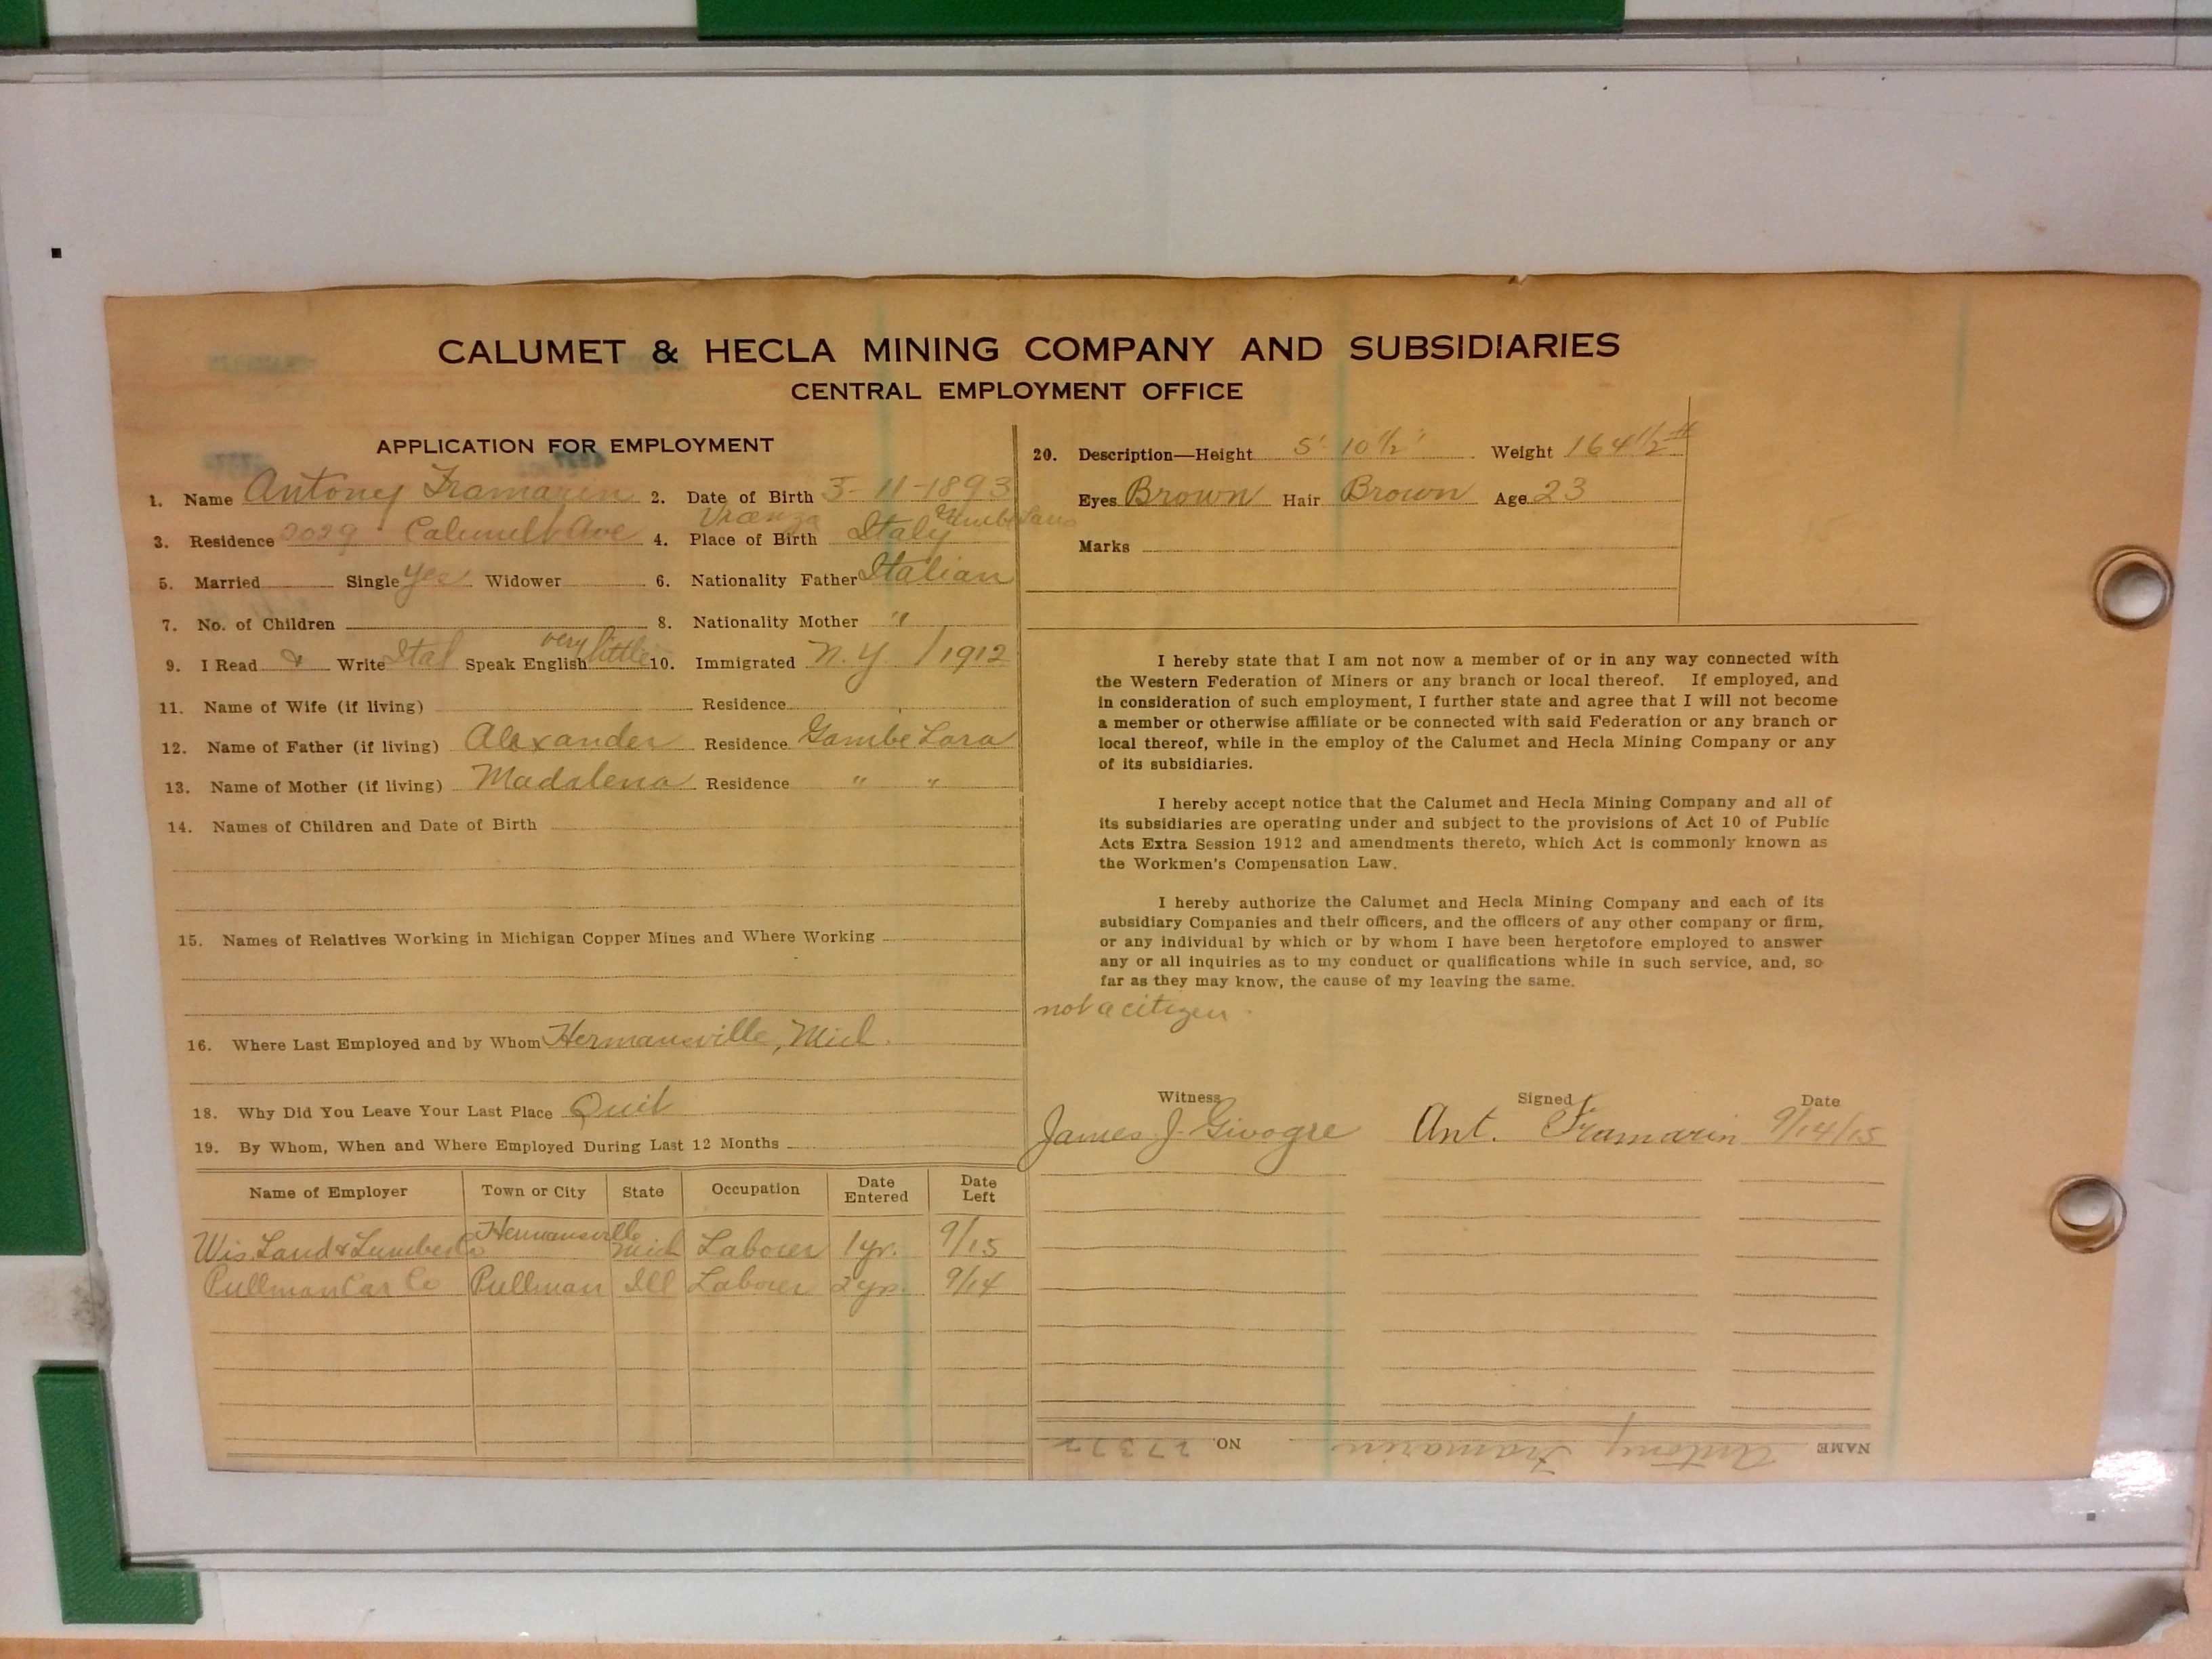 CALUMET & HECLA MINING COMPANY AND SUBSIDIARIES
CENTRAL EMPLOYMENT OFFICE
APPLICATION FOR EMPLOYMENT
1. Name Antoney Framarin 2. Date of Birth 3-11-1893
3. Residence 2029 Calumet Ave 4. Place of Birth Italy
5. Married Single Yes Widower 6. Nationality Father Italian
7. No. of Children 8. Nationality Mother "
9. I Read & Write Ital Speak English very little 10. Immigrated N.Y. / 1912
11. Name of Wife (if living) Residence
12. Name of Father (if living) Alexander Residence Gambe Lara
13. Name of Mother (if living) Madalena Residence " "
14. Names of Children and Date of Birth
15. Names of Relatives Working in Michigan Copper Mines and Where Working
16. Where Last Employed and by Whom Hermansville, Mich.
18. Why Did You Leave Your Last Place Quit
19. By Whom, When and Where Employed During Last 12 Months
Name of Employer Town or City State Occupation Date Entered Date Left
Wis. Land & Lumber Co Hermansville Mich Laborer 1 yr. 9/15
Pullman Car Co Pullman Ill Laborer 2 yrs. 9/14
20. Description—Height 5' 10 1/2" Weight 164 1/2 #
Eyes Brown Hair Brown Age 23
Marks
I hereby state that I am not now a member of or in any way connected with
the Western Federation of Miners or any branch or local thereof. If employed, and
in consideration of such employment, I further state and agree that I will not become
a member or otherwise affiliate or be connected with said Federation or any branch or
local thereof, while in the employ of the Calumet and Hecla Mining Company or any
of its subsidiaries.
I hereby accept notice that the Calumet and Hecla Mining Company and all of
its subsidiaries are operating under and subject to the provisions of Act 10 of Public
Acts Extra Session 1912 and amendments thereto, which Act is commonly known as
the Workmen's Compensation Law.
I hereby authorize the Calumet and Hecla Mining Company and each of its
subsidiary Companies and their officers, and the officers of any other company or firm,
or any individual by which or by whom I have been heretofore employed to answer
any or all inquiries as to my conduct or qualifications while in such service, and, so
far as they may know, the cause of my leaving the same.
not a citizen.
Witness Signed Date
James J. Givogre Ant. Framarin 9/14/15
NAME Antony Framarin NO.